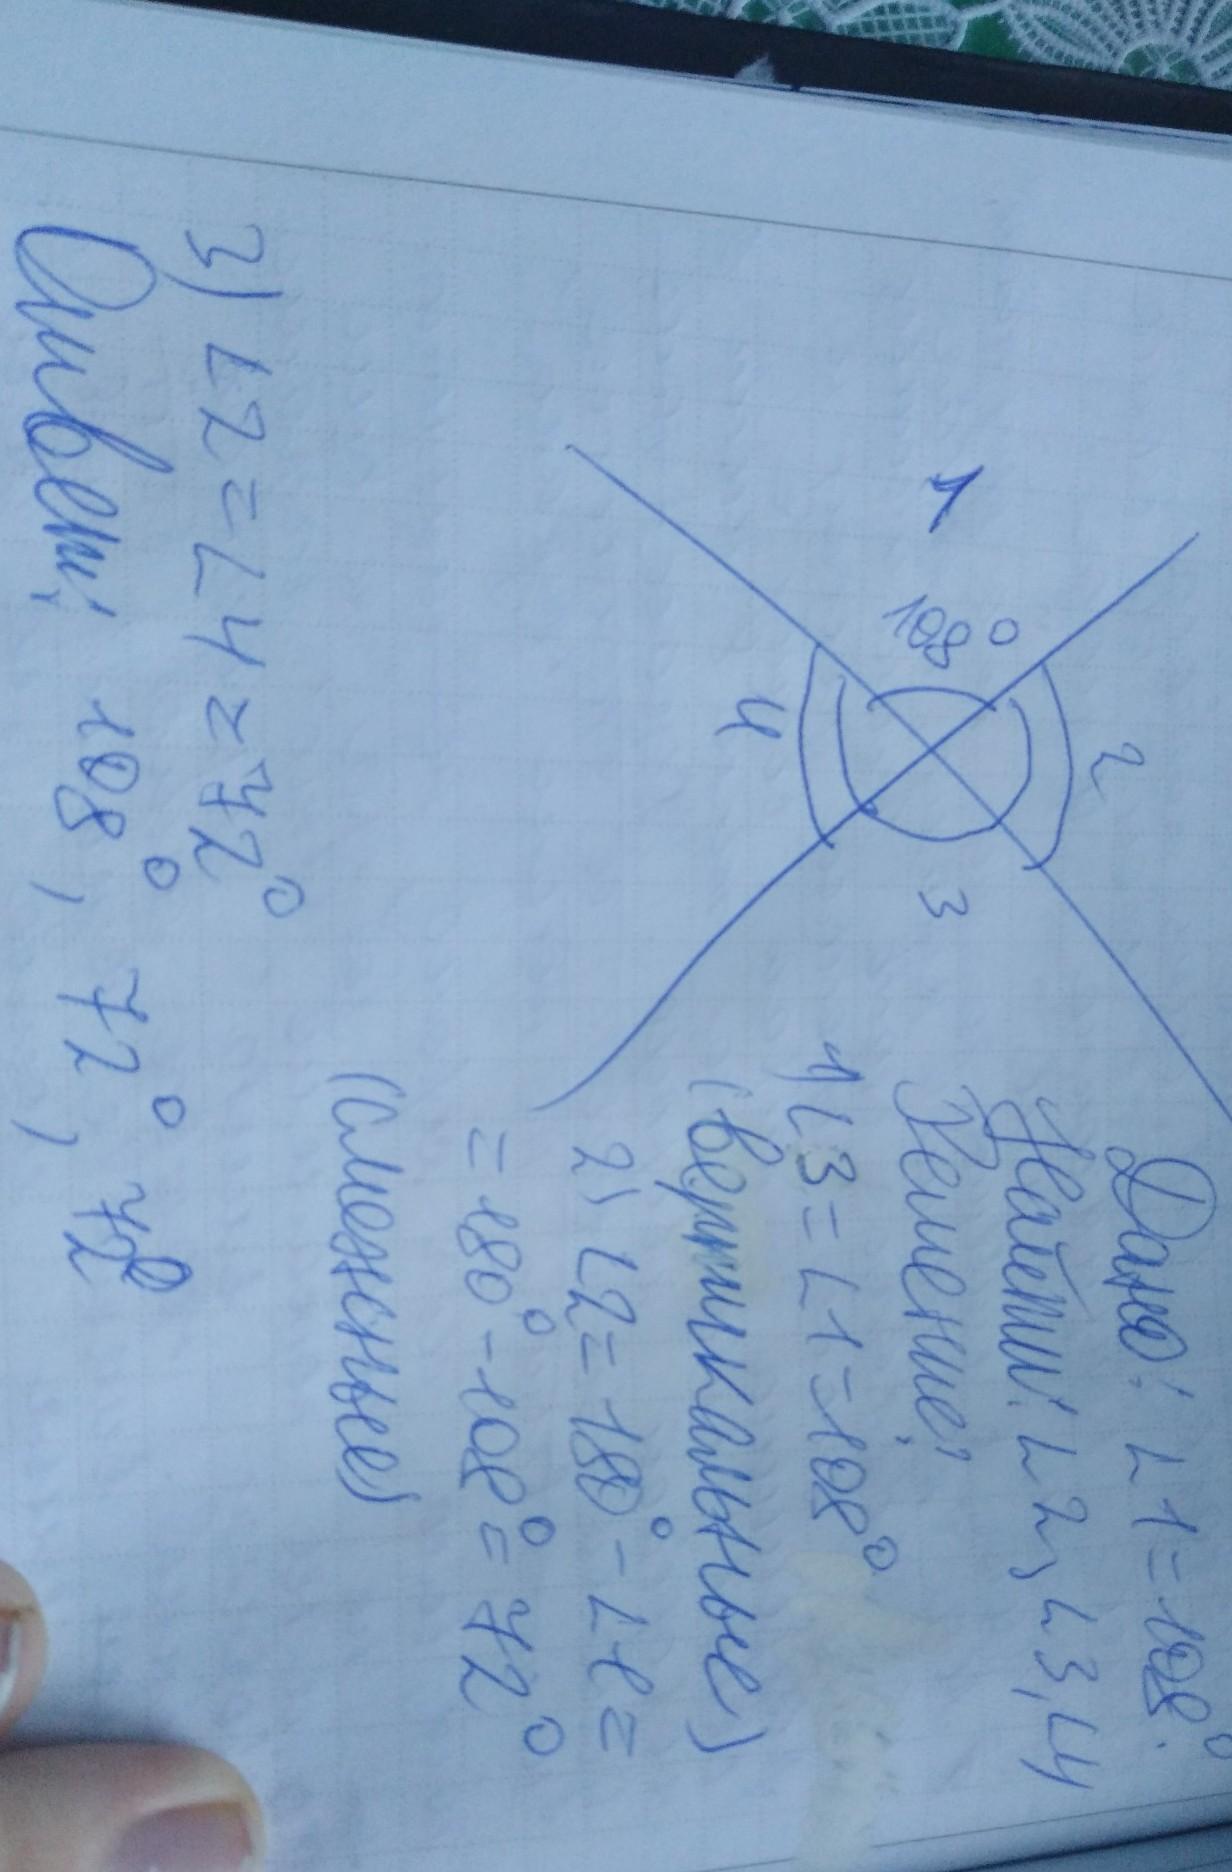 1
108°
2
3
4
Дано: ∠1=108°.
Найти: ∠2, ∠3, ∠4
Решение:
1) ∠3=∠1=108°
(вертикальные)
2) ∠2=180°-∠1=
=180°-108°=72°
(смежные)
3) ∠2=∠4=72°
Ответ: 108°, 72°, 72°